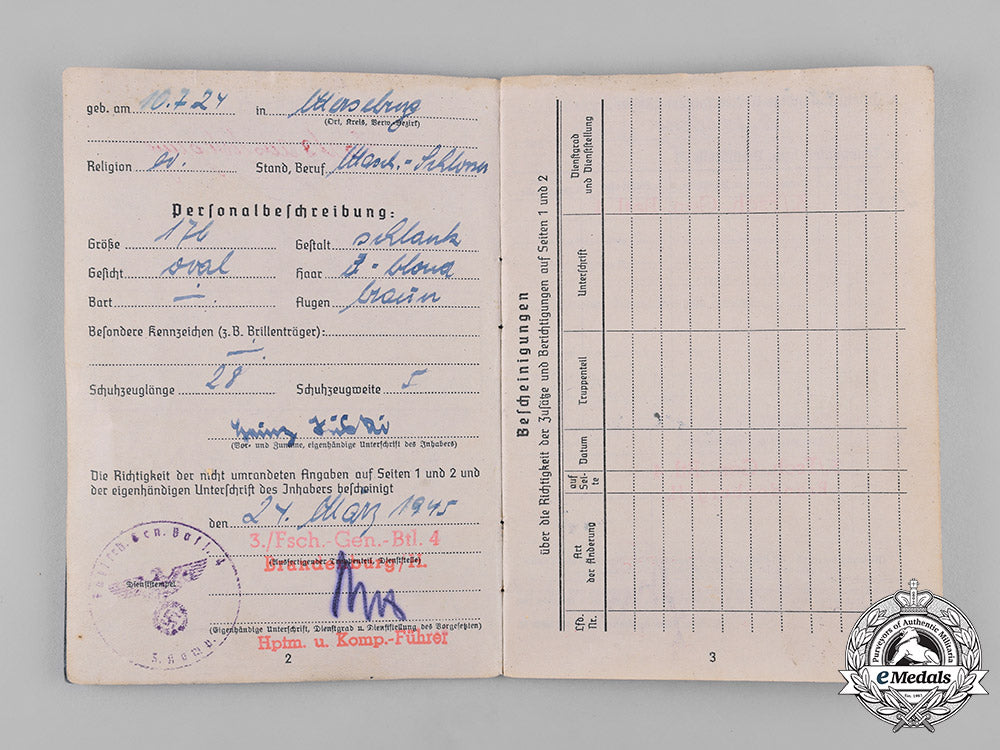 geb. am 10.7.24 in Merseburg
(Ort, Kreis, Verw.-Bezirk)
Religion ev. Stand, Beruf Masch.-Schlosser
Personalbeschreibung:
Größe 176 Gestalt schlank
Gesicht oval Haar d-blond
Bart — Augen braun
Besondere Kennzeichen (z.B. Brillenträger):
—
Schuhzeuglänge 28 Schuhzeugweite 5
Heinz
(Vor- und Zuname, eigenhändige Unterschrift des Inhabers)
Die Richtigkeit der nicht umrandeten Angaben auf Seiten 1 und 2 und
der eigenhändigen Unterschrift des Inhabers bescheinigt
den 24. März 1945
3./Fsch.-Gen.-Btl. 4
(Ausfertigender Truppenteil, Dienststelle)
Brandenburg/H.
Dienststempel
(Eigenhändige Unterschrift, Dienstgrad u. Dienststellung des Vorgesetzten)
Hptm. u. Komp.-Führer
2
Bescheinigungen
über die Richtigkeit der Zusätze und Berichtigungen auf Seiten 1 und 2
Lfd. Nr.
Art der Änderung
auf Sei- te
Datum
Truppenteil
Unterschrift
Dienstgrad und Dienststellung
3
Purveyors of Authentic Militaria
eMedals